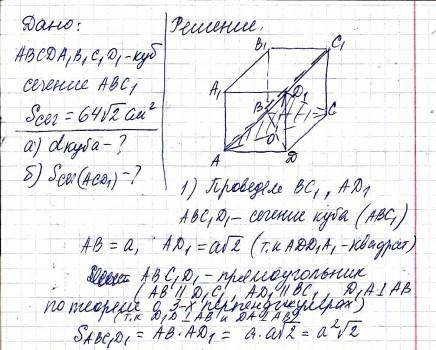 Дано:
ABCDA₁B₁C₁D₁ - куб
сечение ABC₁
Sсеч = 64√2 см²
а) dкуба - ?
б) Sсеч(ACD₁) - ?
Решение.
B₁ C₁
A₁ D₁
B C
O
A D
1) Проведем BC₁, AD₁
ABC₁D₁ - сечение куба (ABC₁)
AB = a, AD₁ = a√2 (т.к ADD₁A₁ - квадрат)
ABC₁D₁ - прямоугольник
(AB || D₁C₁, AD₁ || BC₁, D₁A ⊥ AB
по теореме о 3-х перпендикулярах)
(т.к D₁D ⊥ AB и DA ⊥ AB)
SABC₁D₁ = AB·AD₁ = a·a√2 = a²√2